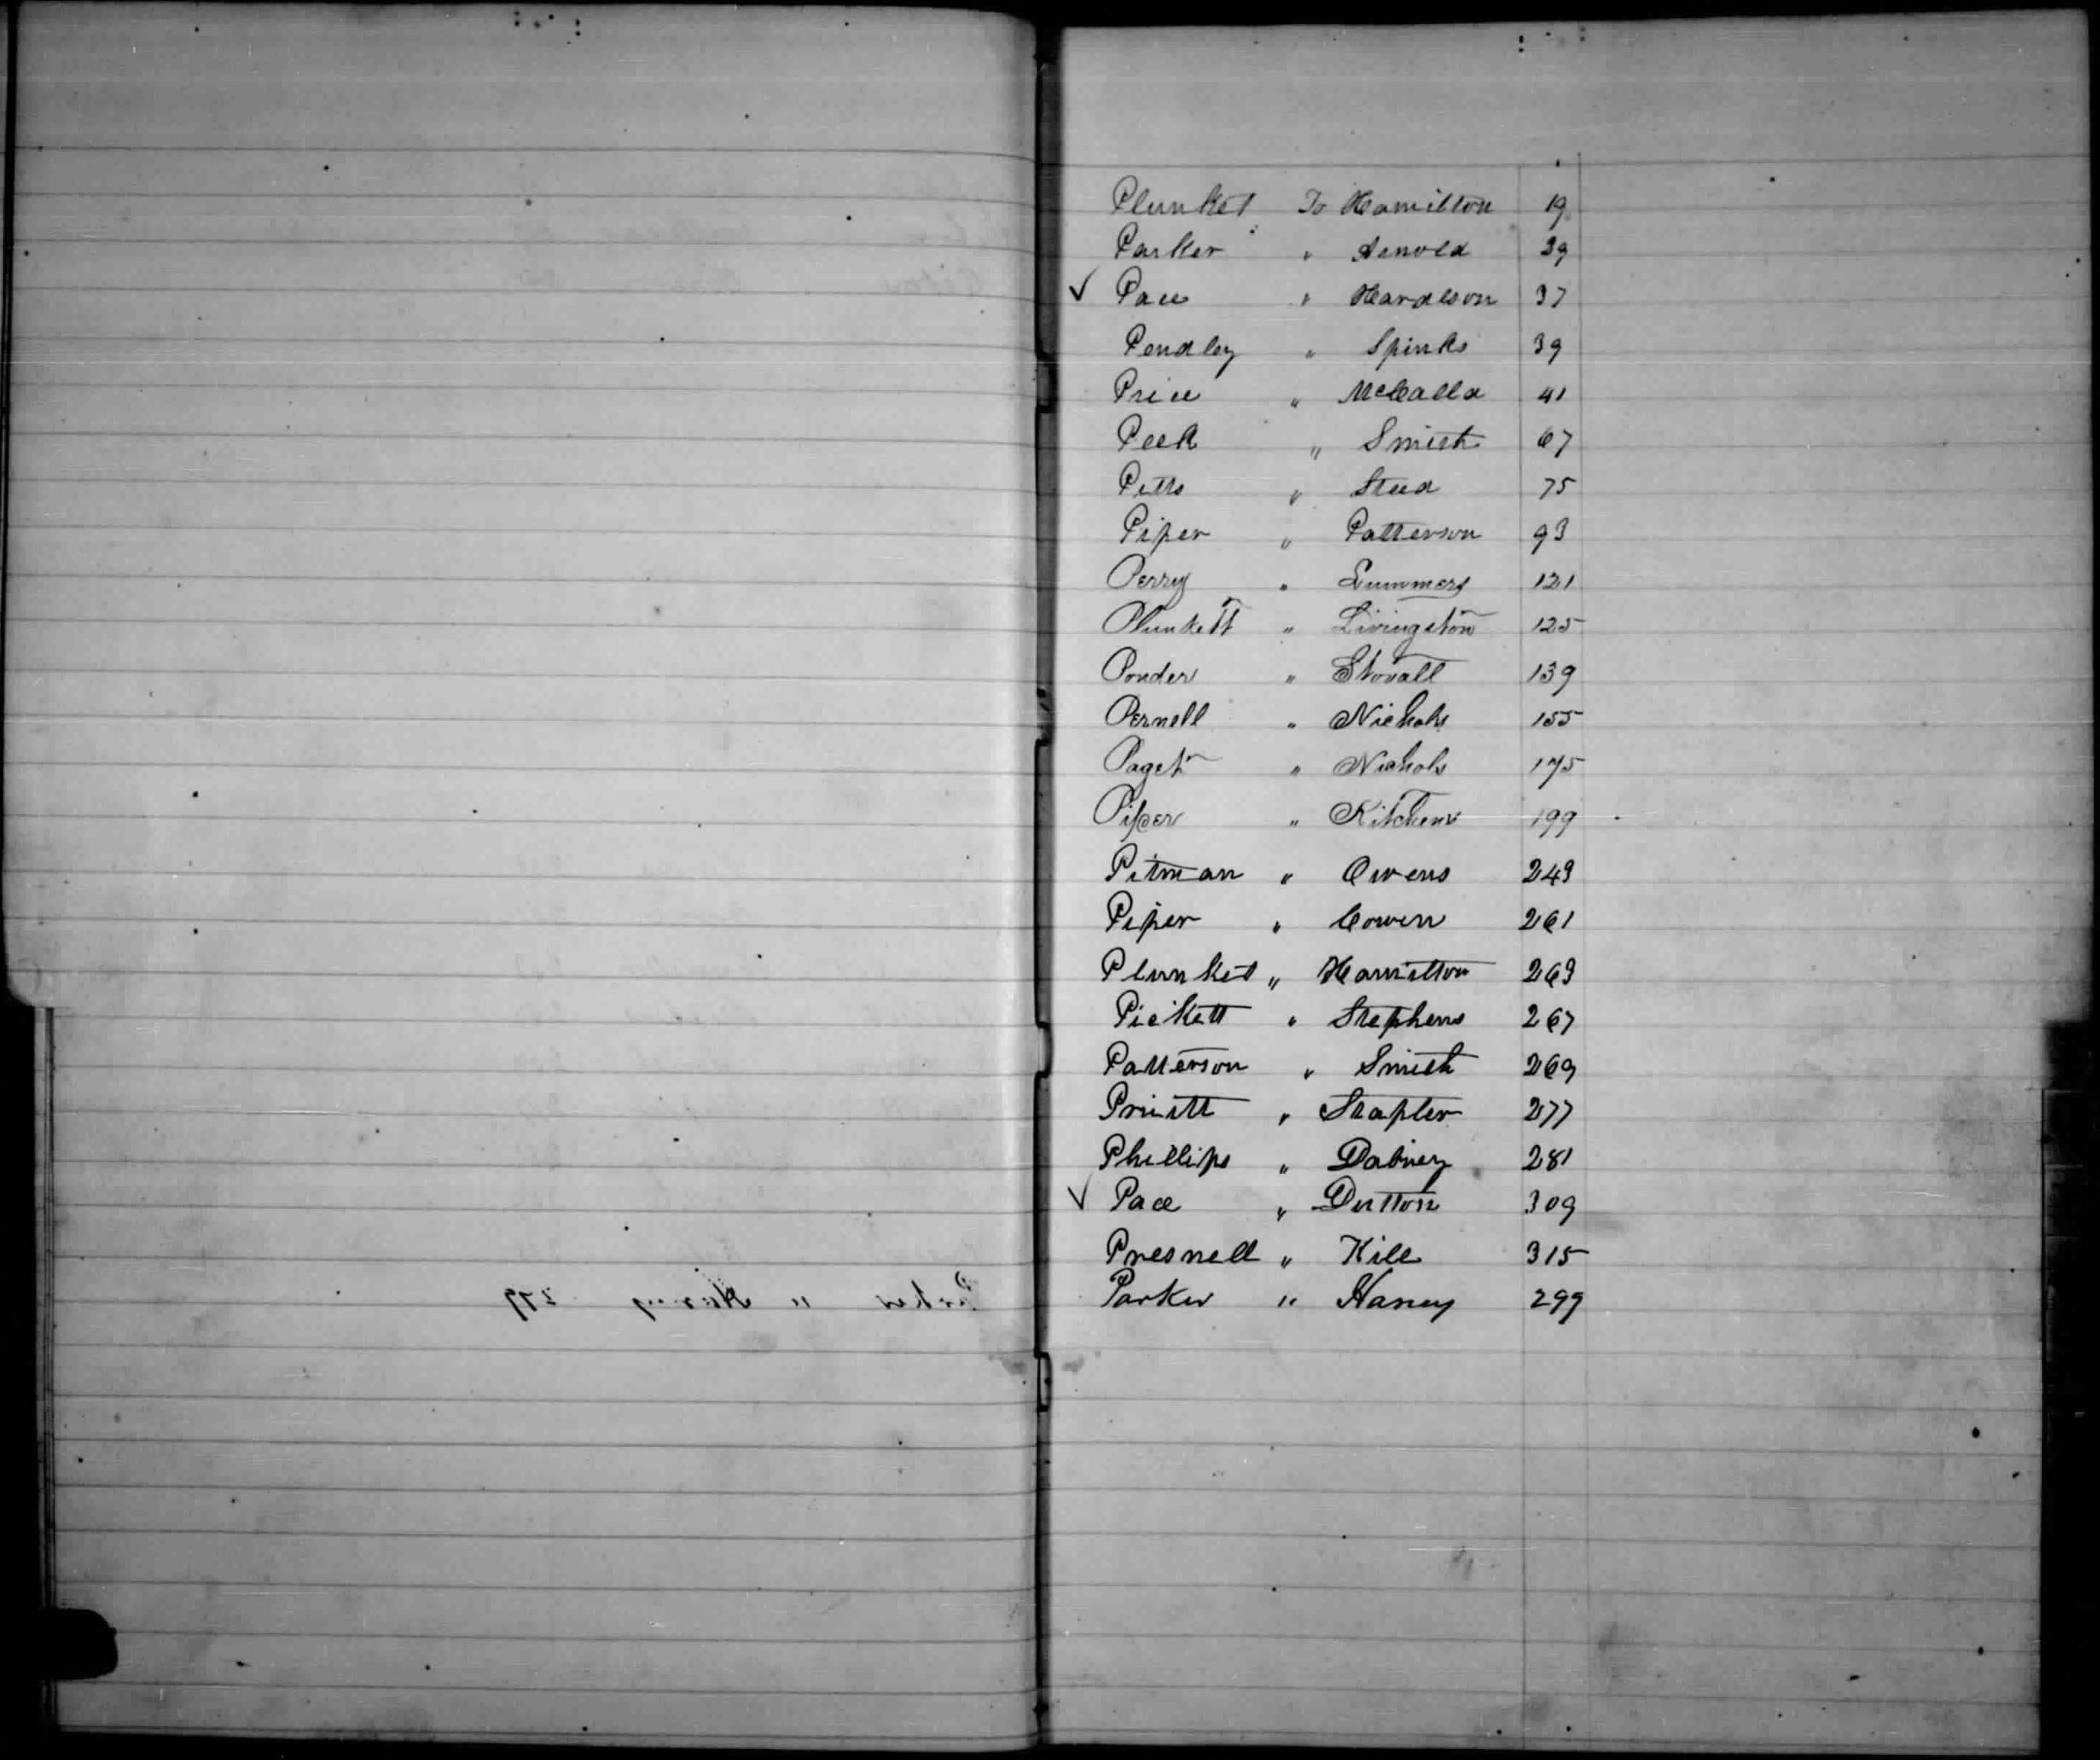 Plunket To Hamilton 19
Parker " Arnold 39
✓ Pace " Hardeson 37
Pendley " Spinks 39
Price " McCalla 41
Peek " Smith 67
Pitts " Steed 75
Piper " Patterson 93
Perry " Summers 121
Plunkett " Livingston 125
Ponder " Stovall 139
Pernell " Nichols 155
Paget " Nichols 175
Piper " Kitchens 199
Pitman " Owens 249
Piper " Cowen 261
Plunket " Hamilton 263
Pickett " Stephens 267
Patterson " Smith 269
Priuitt " Stapler 277
Phillips " Dabney 281
✓ Pace " Dutton 309
Presnell " Kile 315
Parker " Haney 299